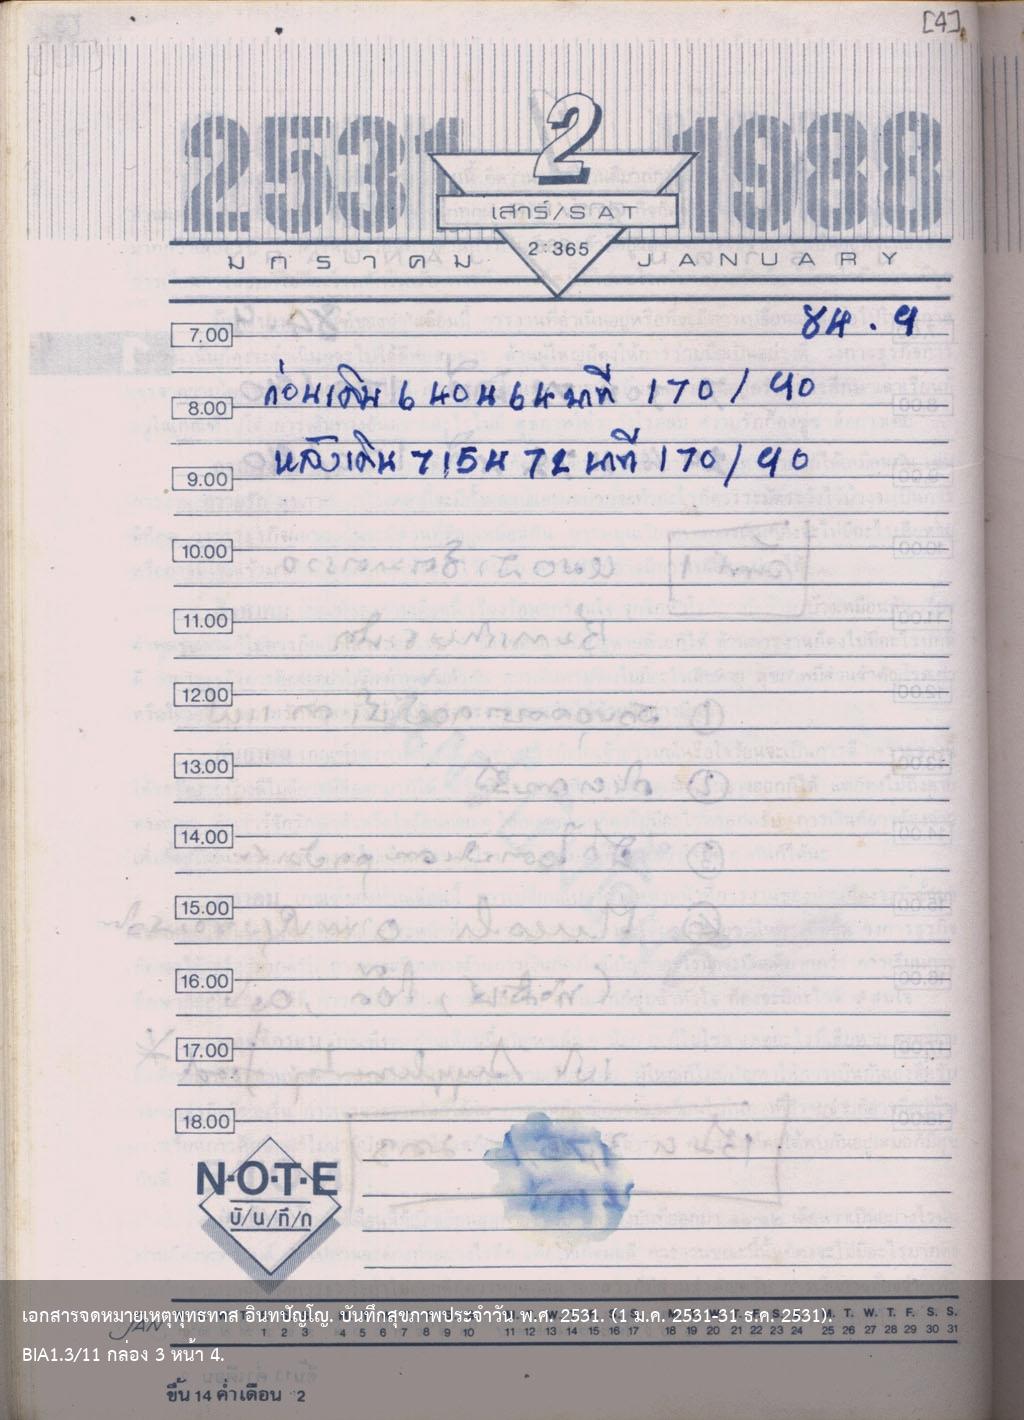 [4]
2531
2
1988
เสาร์/SAT
2:365
มกราคม
JANUARY
7.00
84.9
ก่อนเดิน 6 40 น 64 นาที 170/90
8.00
หลังเดิน 7 15 น 72 นาที 170/90
9.00
10.00
11.00
12.00
13.00
14.00
15.00
16.00
17.00
18.00
N·O·T·E
บั/น/ทึ/ก
เอกสารจดหมายเหตุพุทธทาส อินทปัญโญ. บันทึกสุขภาพประจำวัน พ.ศ. 2531. (1 ม.ค. 2531-31 ธ.ค. 2531).
JAN
M. T. W. T. F. S. S.
1 2 3 4 5 6 7 8 9 10 11 12 13 14 15 16 17 18 19 20 21 22 23 24 25 26 27 28 29 30 31
BIA1.3/11 กล่อง 3 หน้า 4.
ขึ้น 14 ค่ำเดือน 2